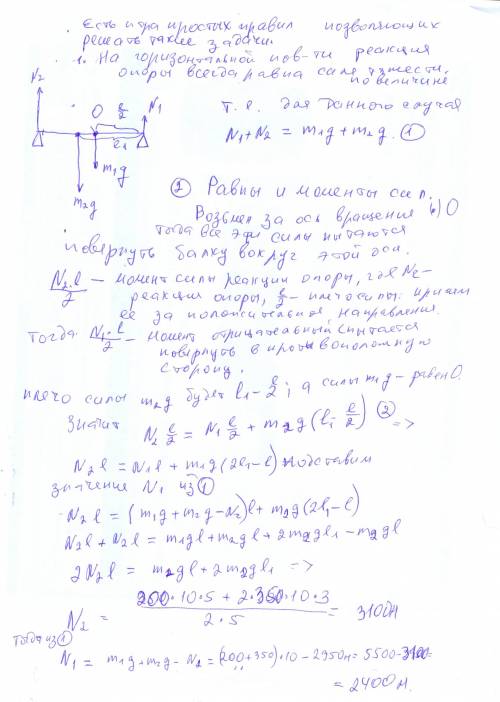 Есть пра простых правил позволяющих
решать такие задачи.
1. На горизонтальной пов-ти реакция
опоры всегда равна силе тяжести,
по величине
Т.е. для данного случая
N₁+N₂ = m₁g+m₂g. ①
N₂
O
ℓ/2
N₁
ℓ₁
m₁g
m₂g
② Равны и моменты сил.
Возьмем за ось вращения О
тогда все эти силы пытаются
повернуть балку вокруг этой оси.
N₂·ℓ/2 — момент силы реакции опоры, где N₂-
реакция опоры, ℓ/2 - плечо силы. примем
ее за положительное направления.
Тогда N₁·ℓ/2 — момент отрицательный (пытается
повернуть в противоположную
сторону.
плечо силы m₂g будет ℓ₁-ℓ/2; а силы m₁g - равен 0.
Значит
N₂ ℓ/2 = N₁ ℓ/2 + m₂g(ℓ₁-ℓ/2) ② =>
N₂ℓ = N₁ℓ + m₁g(2ℓ₁-ℓ) подставим
значение N₁ из ①
N₂ℓ = (m₁g+m₂g-N₂)ℓ+m₂g(2ℓ₁-ℓ)
N₂ℓ+N₂ℓ = m₁gℓ+m₂gℓ+2m₂gℓ₁-m₂gℓ
2N₂ℓ = m₂gℓ+2m₂gℓ₁ =>
N₂ = (200·10·5+2·350·10·3)/(2·5) = 3100н
тогда из ①
N₁ = m₁g+m₂g-N₂=(200+350)·10-2950н=5500-3100=
= 2400н.